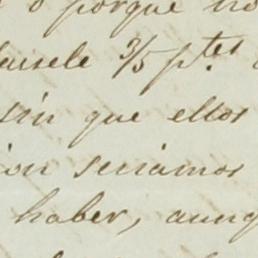 o porque no
dársele 3/5 p.tes
sin que ellos
ion seriamos
haber, aunq